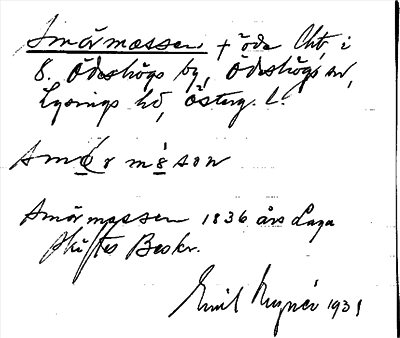 Smörmossen + öde Ehb. i
8. Ödeshögs by, Ödeshögs sn,
Lysings hd, Österg. L.
smör mósən
Smörmossen 1836 års Laga
skiftes Beskr.
Emil 1931